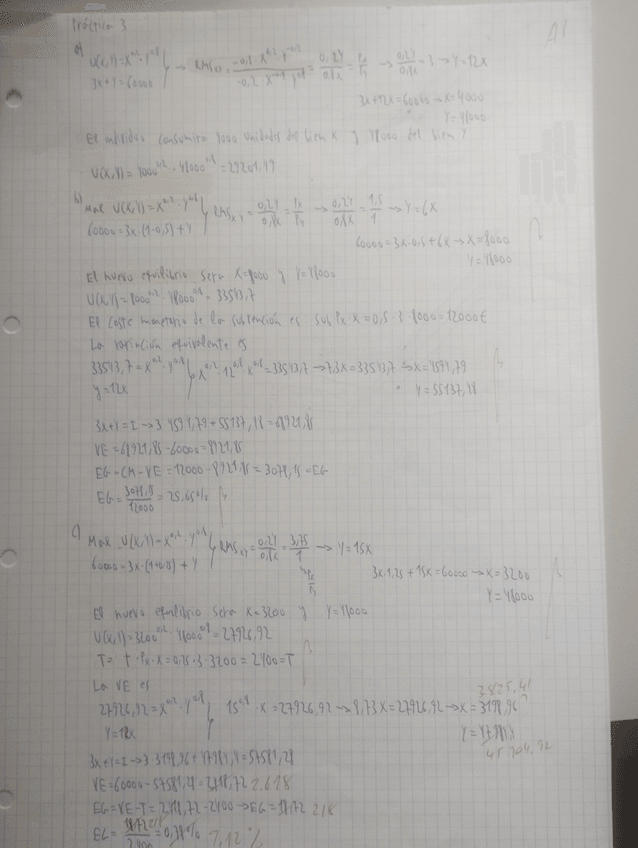 Práctica 3
A1
a) U(X,Y)=X^0,2 · Y^0,8
3x+Y=60000 → RMS = -0,2 · X^-0,8 · Y^0,8 = 0,2Y/0,8X = Px/Py → 0,2Y/0,8X = 3 → Y=12X
3x+12x=60000 → X=4000
Y=48000
El individuo consumirá 4000 unidades del bien X y 48000 del bien Y
U(X,Y)= 4000^0,2 · 48000^0,8 = 29201,49
b) Max U(X,Y)=X^0,2 · Y^0,8
60000=3x·(1-0,5)+Y RMSxy=0,2Y/0,8X=Px/Py → 0,2Y/0,8X=1,5/1 → Y=6X
60000=3x·0,5+6x → X=8000
Y=48000
El nuevo equilibrio será X=8000 y Y=48000
U(X,Y)=8000^0,2 · 48000^0,8 = 33543,7
El coste monetario de la subvención es sub·Px·X=0,5·3·8000=12000€
La variación equivalente es
33543,7=X^0,2 · Y^0,8
y=12x X^0,2 · 12^0,8 X^0,8=33543,7 → 7,3X=33543,7 → X=4594,79
Y=55137,48
3x+Y=I → 3·4594,79+55137,48=68921,85
VE=68921,85-60000=8921,85
EG=CM-VE=12000-8921,85=3078,15=EG
EG=3078,15/12000=25,65%
c) Max U(X,Y)=X^0,2 · Y^0,8
60000=3x·(1+0,25)+Y RMSxy=0,2Y/0,8X=3,75/1 → Y=15X
Px/Py
3x·1,25+15x=60000 → X=3200
Y=48000
El nuevo equilibrio será X=3200 y Y=48000
U(X,Y)=3200^0,2 · 48000^0,8=27926,92
T= t·Px·X=0,25·3·3200=2400=T
La VE es
3825,41
27926,92=X^0,2 · Y^0,8
Y=12x 15^0,8 · X=27926,92 → 8,73X=27926,92 → X=3198,96
45904,92
3x+Y=I → 3·3198,96+47984,4=57581,28
VE=60000-57581,28=2418,72 2.618
EG=VE-T=2418,72-2400 → EG=18,72 218
EG=18,72/2400=0,78% 7,12%